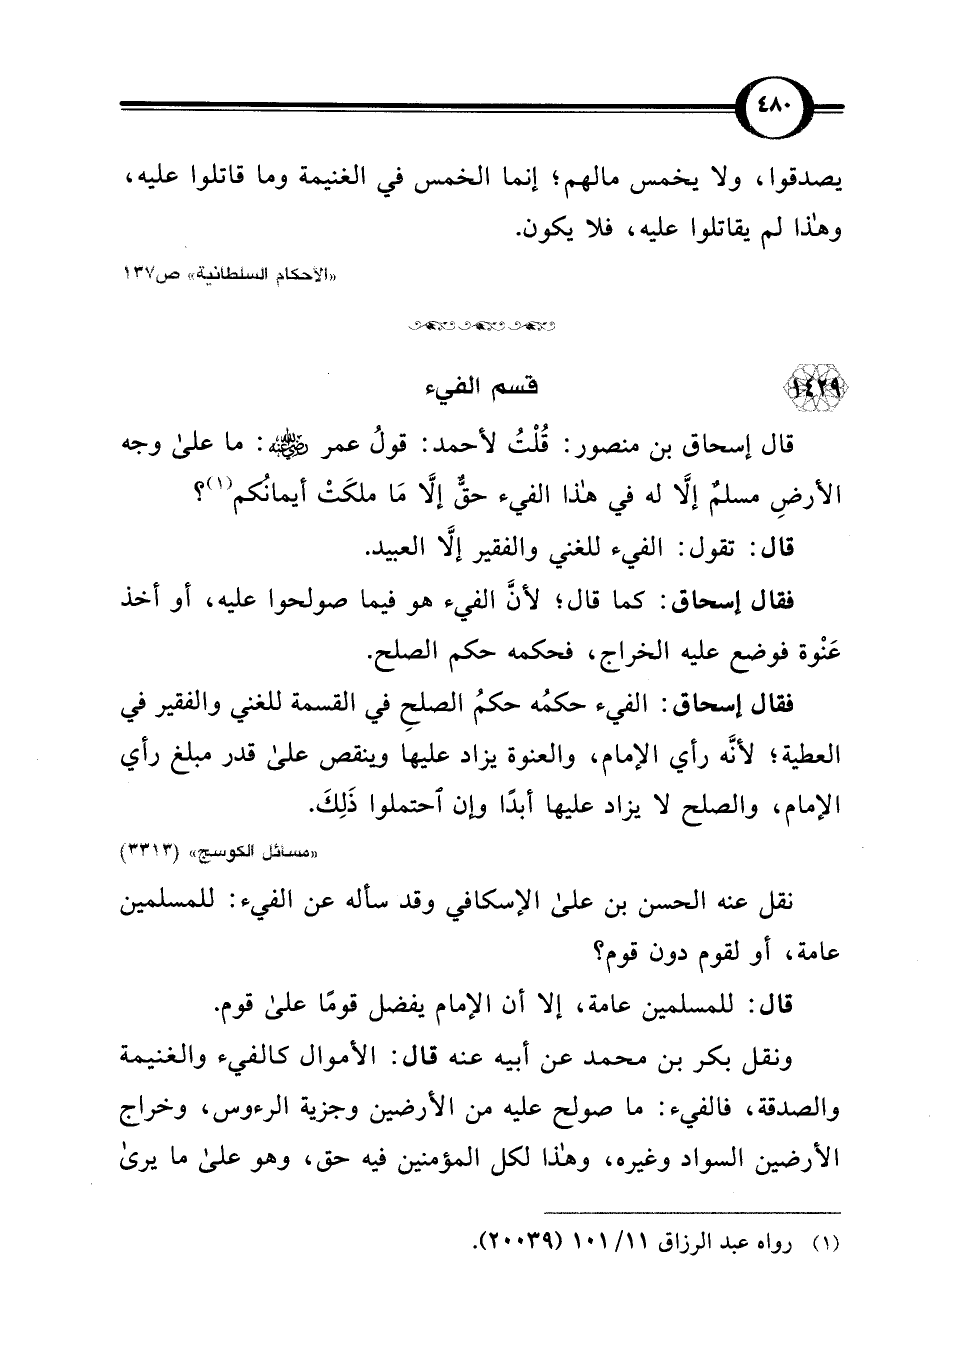 ٤٨٠
يصدقوا، ولا يخمس مالهم؛ إنما الخمس في الغنيمة وما قاتلوا عليه،
وهذا لم يقاتلوا عليه، فلا يكون.
«الأحكام السلطانية» ص١٣٧
١٤٢٩
قسم الفيء
قال إسحاق بن منصور: قُلْتُ لأحمد: قولُ عمر رضي الله عنه: ما علىٰ وجه
الأرضِ مسلمٌ إلَّا له في هذا الفيء حقٌّ إلَّا مَا ملكَتْ أيمانُكم(١)؟
قال: تقول: الفيء للغني والفقير إلَّا العبيد.
فقال إسحاق: كما قال؛ لأنَّ الفيء هو فيما صولحوا عليه، أو أخذ
عَنْوة فوضع عليه الخراج، فحكمه حكم الصلح.
فقال إسحاق: الفيء حكمُه حكمُ الصلحِ في القسمة للغني والفقير في
العطية؛ لأنَّه رأي الإمام، والعنوة يزاد عليها وينقص علىٰ قدر مبلغ رأي
الإمام، والصلح لا يزاد عليها أبدًا وإن ٱحتملوا ذَلِكَ.
«مسائل الكوسج» (٣٣١٣)
نقل عنه الحسن بن علىٰ الإسكافي وقد سأله عن الفيء: للمسلمين
عامة، أو لقوم دون قوم؟
قال: للمسلمين عامة، إلا أن الإمام يفضل قومًا علىٰ قوم.
ونقل بكر بن محمد عن أبيه عنه قال: الأموال كالفيء والغنيمة
والصدقة، فالفيء: ما صولح عليه من الأرضين وجزية الرءوس، وخراج
الأرضين السواد وغيره، وهذا لكل المؤمنين فيه حق، وهو علىٰ ما يرىٰ
(١) رواه عبد الرزاق ١١/ ١٠١ (٢٠٠٣٩).